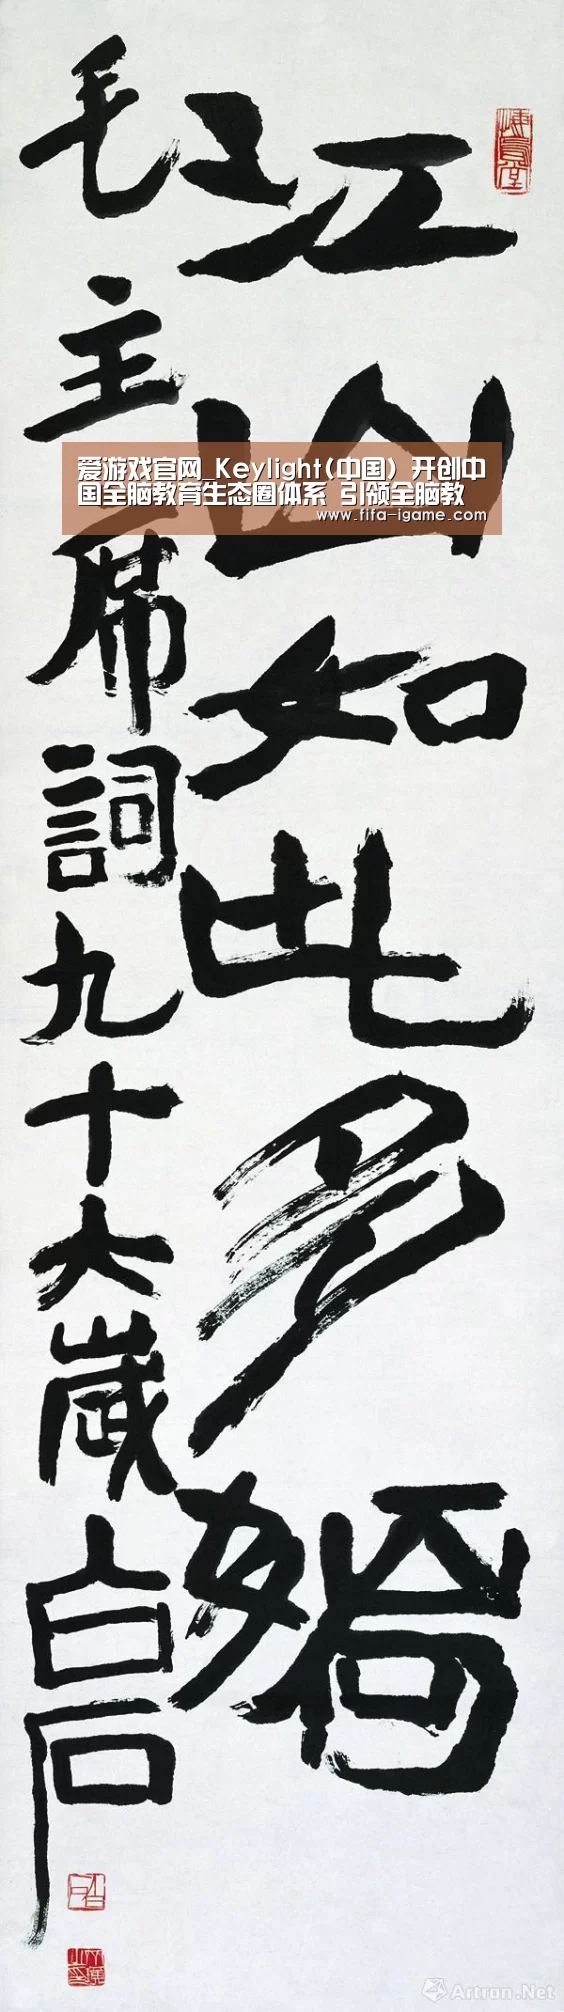 江山如此多嬌
毛主席詞九十六歲白石
爱游戏官网_Keylight(中国) 开创中
国全脑教育生态圈体系 引领全脑教
www.fifa-igame.com
Artron.Net